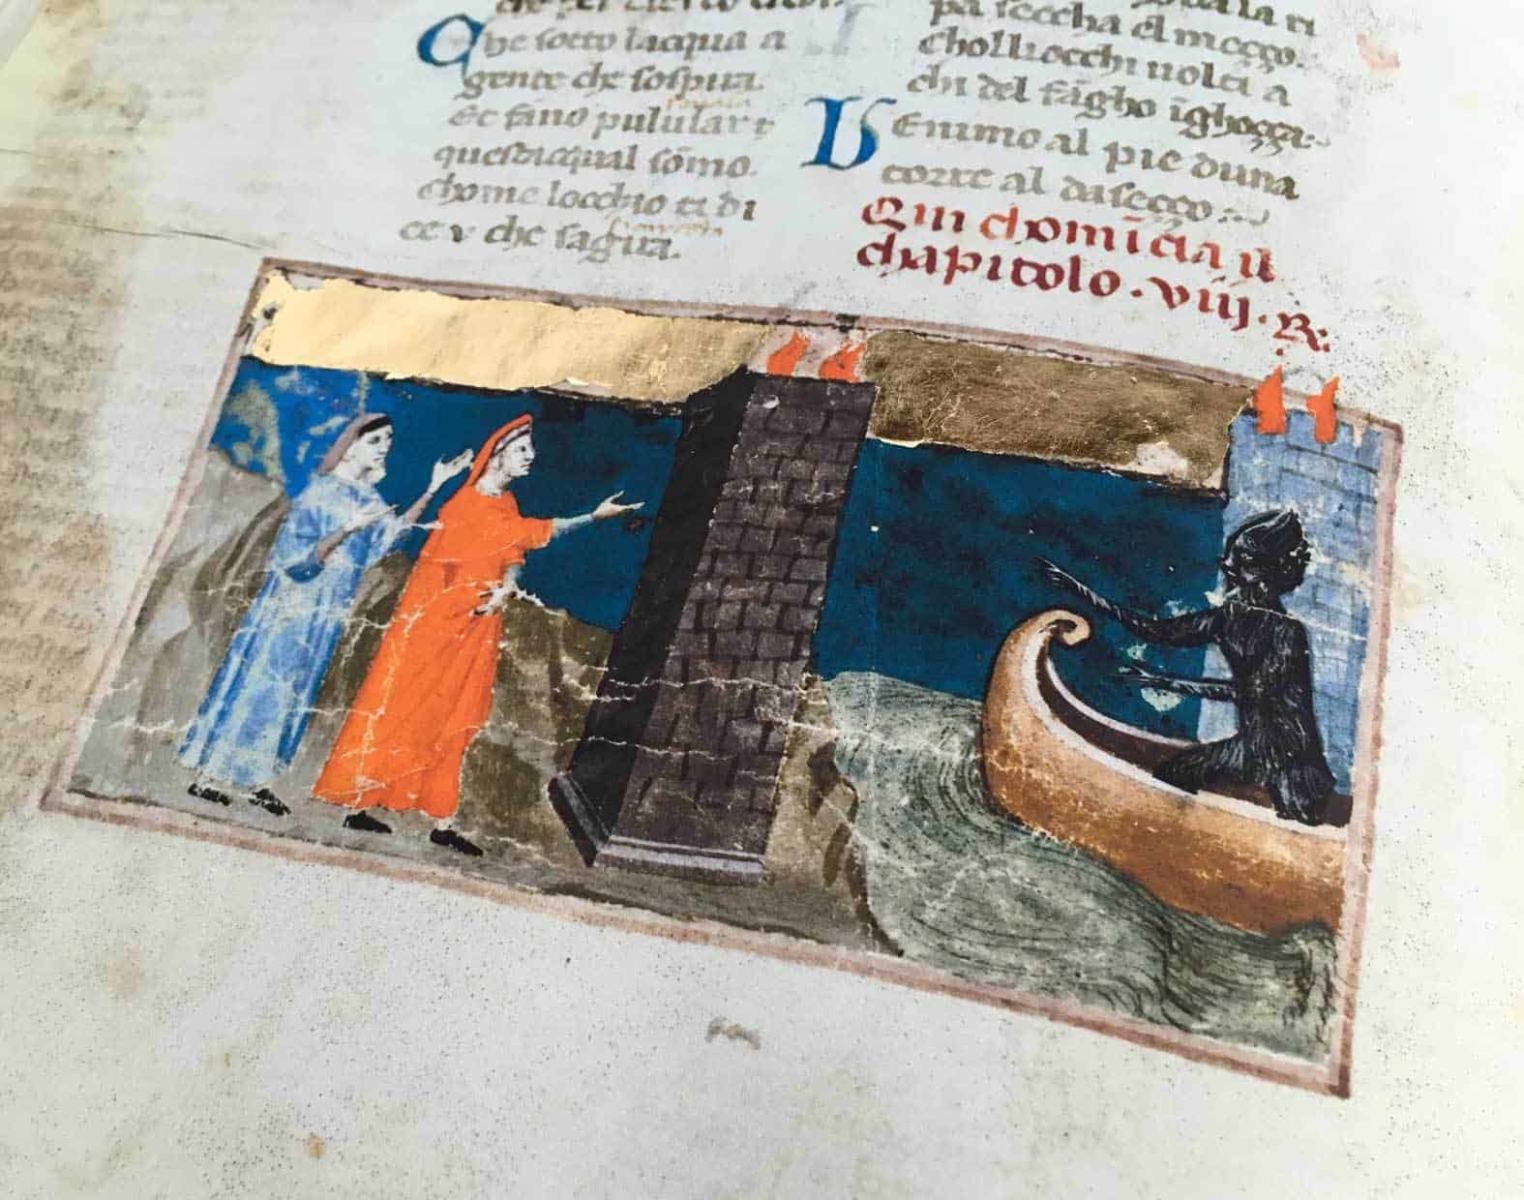 che sotto lacqua a
gente che sospira.
Et fano pulular
questacqual somo.
chome locchio ti di
ce v che sagira.
pa seccha el meçço.
cholliocchi uolti a
chi del fāgho īghoçça.
Venimo al pie duna
torre al dasecço
Qui chomīcia il
chapitolo . viij . R: